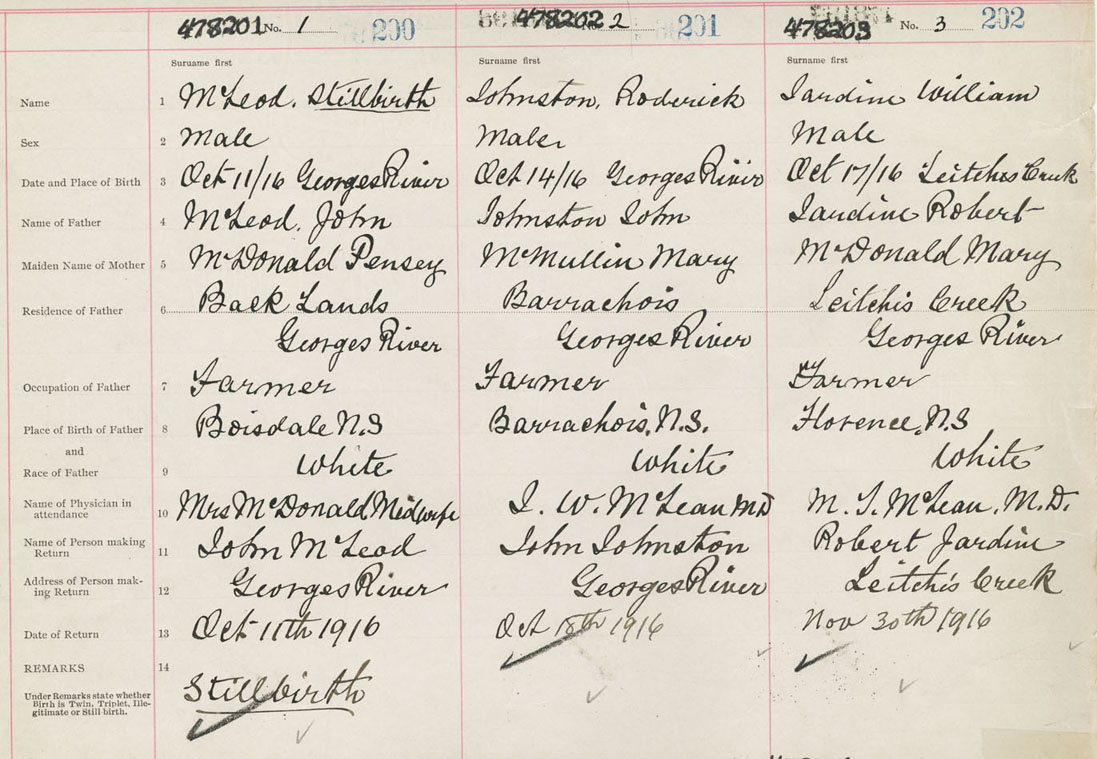 478201 No. 1 200 478202 No. 2 201 478203 No. 3 202
Surname first Surname first Surname first
Name 1 McLeod, Stillbirth Johnston, Roderick Jardine William
Sex 2 Male Male Male
Date and Place of Birth 3 Oct 11/16 Georges River Oct 14/16 Georges River Oct 17/16 Leitches Creek
Name of Father 4 McLeod, John Johnston John Jardine Robert
Maiden Name of Mother 5 McDonald Pensey McMullin Mary McDonald Mary
Residence of Father 6 Back Lands Barrachois Leitchis Creek
Georges River Georges River Georges River
Occupation of Father 7 Farmer Farmer Farmer
Place of Birth of Father 8 Boisdale N.S Barrachois, N.S. Florence, N.S
and
Race of Father 9 White White White
Name of Physician in
attendance 10 Mrs McDonald Midwife J. W. McLean MD M. T. McLean, M.D.
Name of Person making
Return 11 John McLeod John Johnston Robert Jardine
Address of Person mak-
ing Return 12 Georges River Georges River Leitchis Creek
Date of Return 13 Oct 11th 1916 Oct 18th 1916 Nov 30th 1916
REMARKS 14
Under Remarks state whether
Birth is Twin, Triplet, Ille-
gitimate or Still birth.
Stillbirth